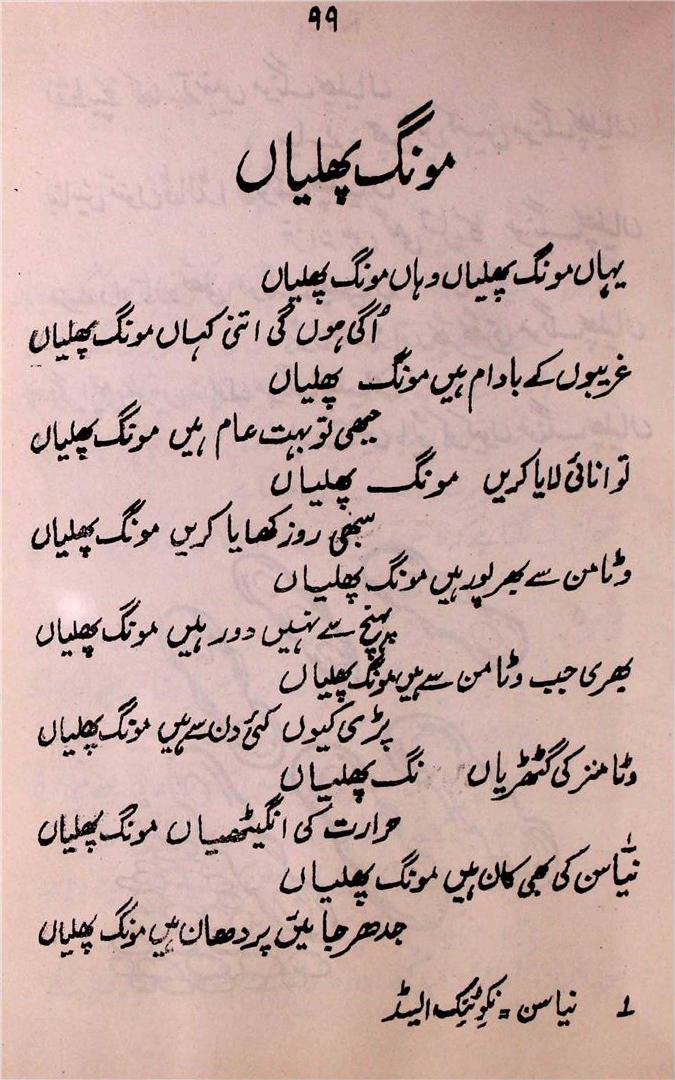 ۹۹
مونگ پھلیاں
یہاں مونگ پھلیاں وہاں مونگ پھلیاں
اُگی ہوں گی اتنی کہاں مونگ پھلیاں
غریبوں کے بادام ہیں مونگ پھلیاں
جبھی تو بہت عام ہیں مونگ پھلیاں
توانائی لایا کریں مونگ پھلیاں
سبھی روز کھایا کریں مونگ پھلیاں
وٹامن سے بھرپور ہیں مونگ پھلیاں
پہنچ سے نہیں دور ہیں مونگ پھلیاں
بھری جب وٹامن سے ہیں مونگ پھلیاں
پڑی کیوں کئی دن سے ہیں مونگ پھلیاں
وٹامنز کی گٹھڑیاں نگ پھلیاں
حرارت کی انگیٹھیاں مونگ پھلیاں
نیاسن کی بھی کان ہیں مونگ پھلیاں
جدھر جائیں پردھان ہیں مونگ پھلیاں
۱ نیاسن = نکوٹنِک ایسڈ